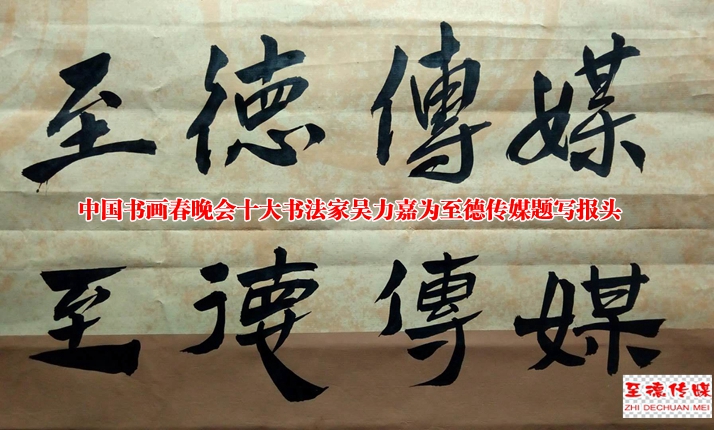 至德傳媒
中国书画春晚会十大书法家吴力嘉为至德传媒题写报头
至德傳媒
至德传媒
ZHI DECHUAN MEI